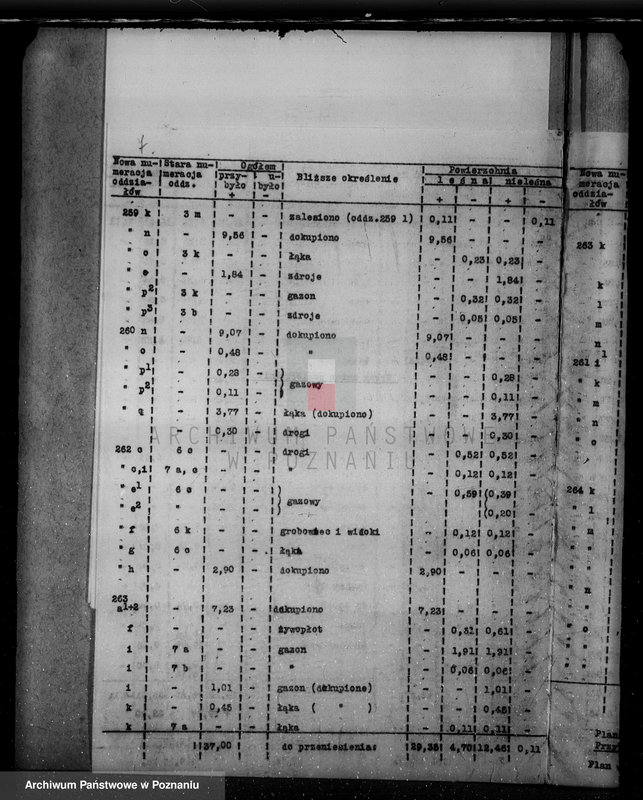 7.
Nowa nu-meracja oddzia-łów | Stara nu-meracja oddz. | Ogółem przy-było + | u-było - | Bliższe określenie | Powierzchnia leśna + | - | nieleśna + | -
259 k 3 m - - zalesiono (oddz.259 l) 0,11 - - 0,11
" n - 9,56 - dokupiono 9,56 - - -
" o 3 k - - łąka - 0,23 0,23 -
" o - 1,84 - zdroje - - 1,84 -
" p2 3 k - - gazon - 0,32 0,32 -
" p3 3 b - - zdroje - 0,05 0,05 -
260 n - 9,07 - dokupiono 9,07 - - -
" o - 0,48 - " 0,48 - - -
" p1 - 0,28 - ) - - 0,28 -
gazowy
" p2 - 0,11 - ) - - 0,11 -
" q - 3,77 - łąka (dokupiono) - - 3,77 -
- 0,30 - drogi - - 0,30 -
262 c 6 c - - drogi - 0,52 0,52 -
" c,i 7 a, c - - - 0,12 0,12 -
" e1 6 c - - ) - 0,59 (0,39 -
gazowy
" e2 " - - ) (0,20 -
" f 6 k - - grobowiec i widoki - 0,12 0,12 -
" g 6 c - - łąka - 0,06 0,06 -
" h - 2,90 - dokupiono 2,90 - - -
263
a1+2 - 7,23 - dokupiono 7,23 - - -
f - - żywopłot - 0,31 0,61 -
i 7 a - - gazon - 1,91 1,91 -
i 7 b - - " - 0,06 0,06 -
i - 1,01 - gazon (dokupiono) - - 1,01 -
k - 0,45 - łąka ( " ) - - 0,45 -
k 7 a - - łąka - 0,11 0,11 -
37,00 do przeniesienia: 29,35 4,70 12,46 0,11
Nowa nu-meracja oddzia-łów
263 k
k
l
m
n1
261 i
" k
" m
" n
" o
264 k
" l
" m
"
"
" n
"
" o
"
"
Plan
Przy
Plan w
ARCHIWUM PAŃSTWOWE
W POZNANIU
Archiwum Państwowe w Poznaniu